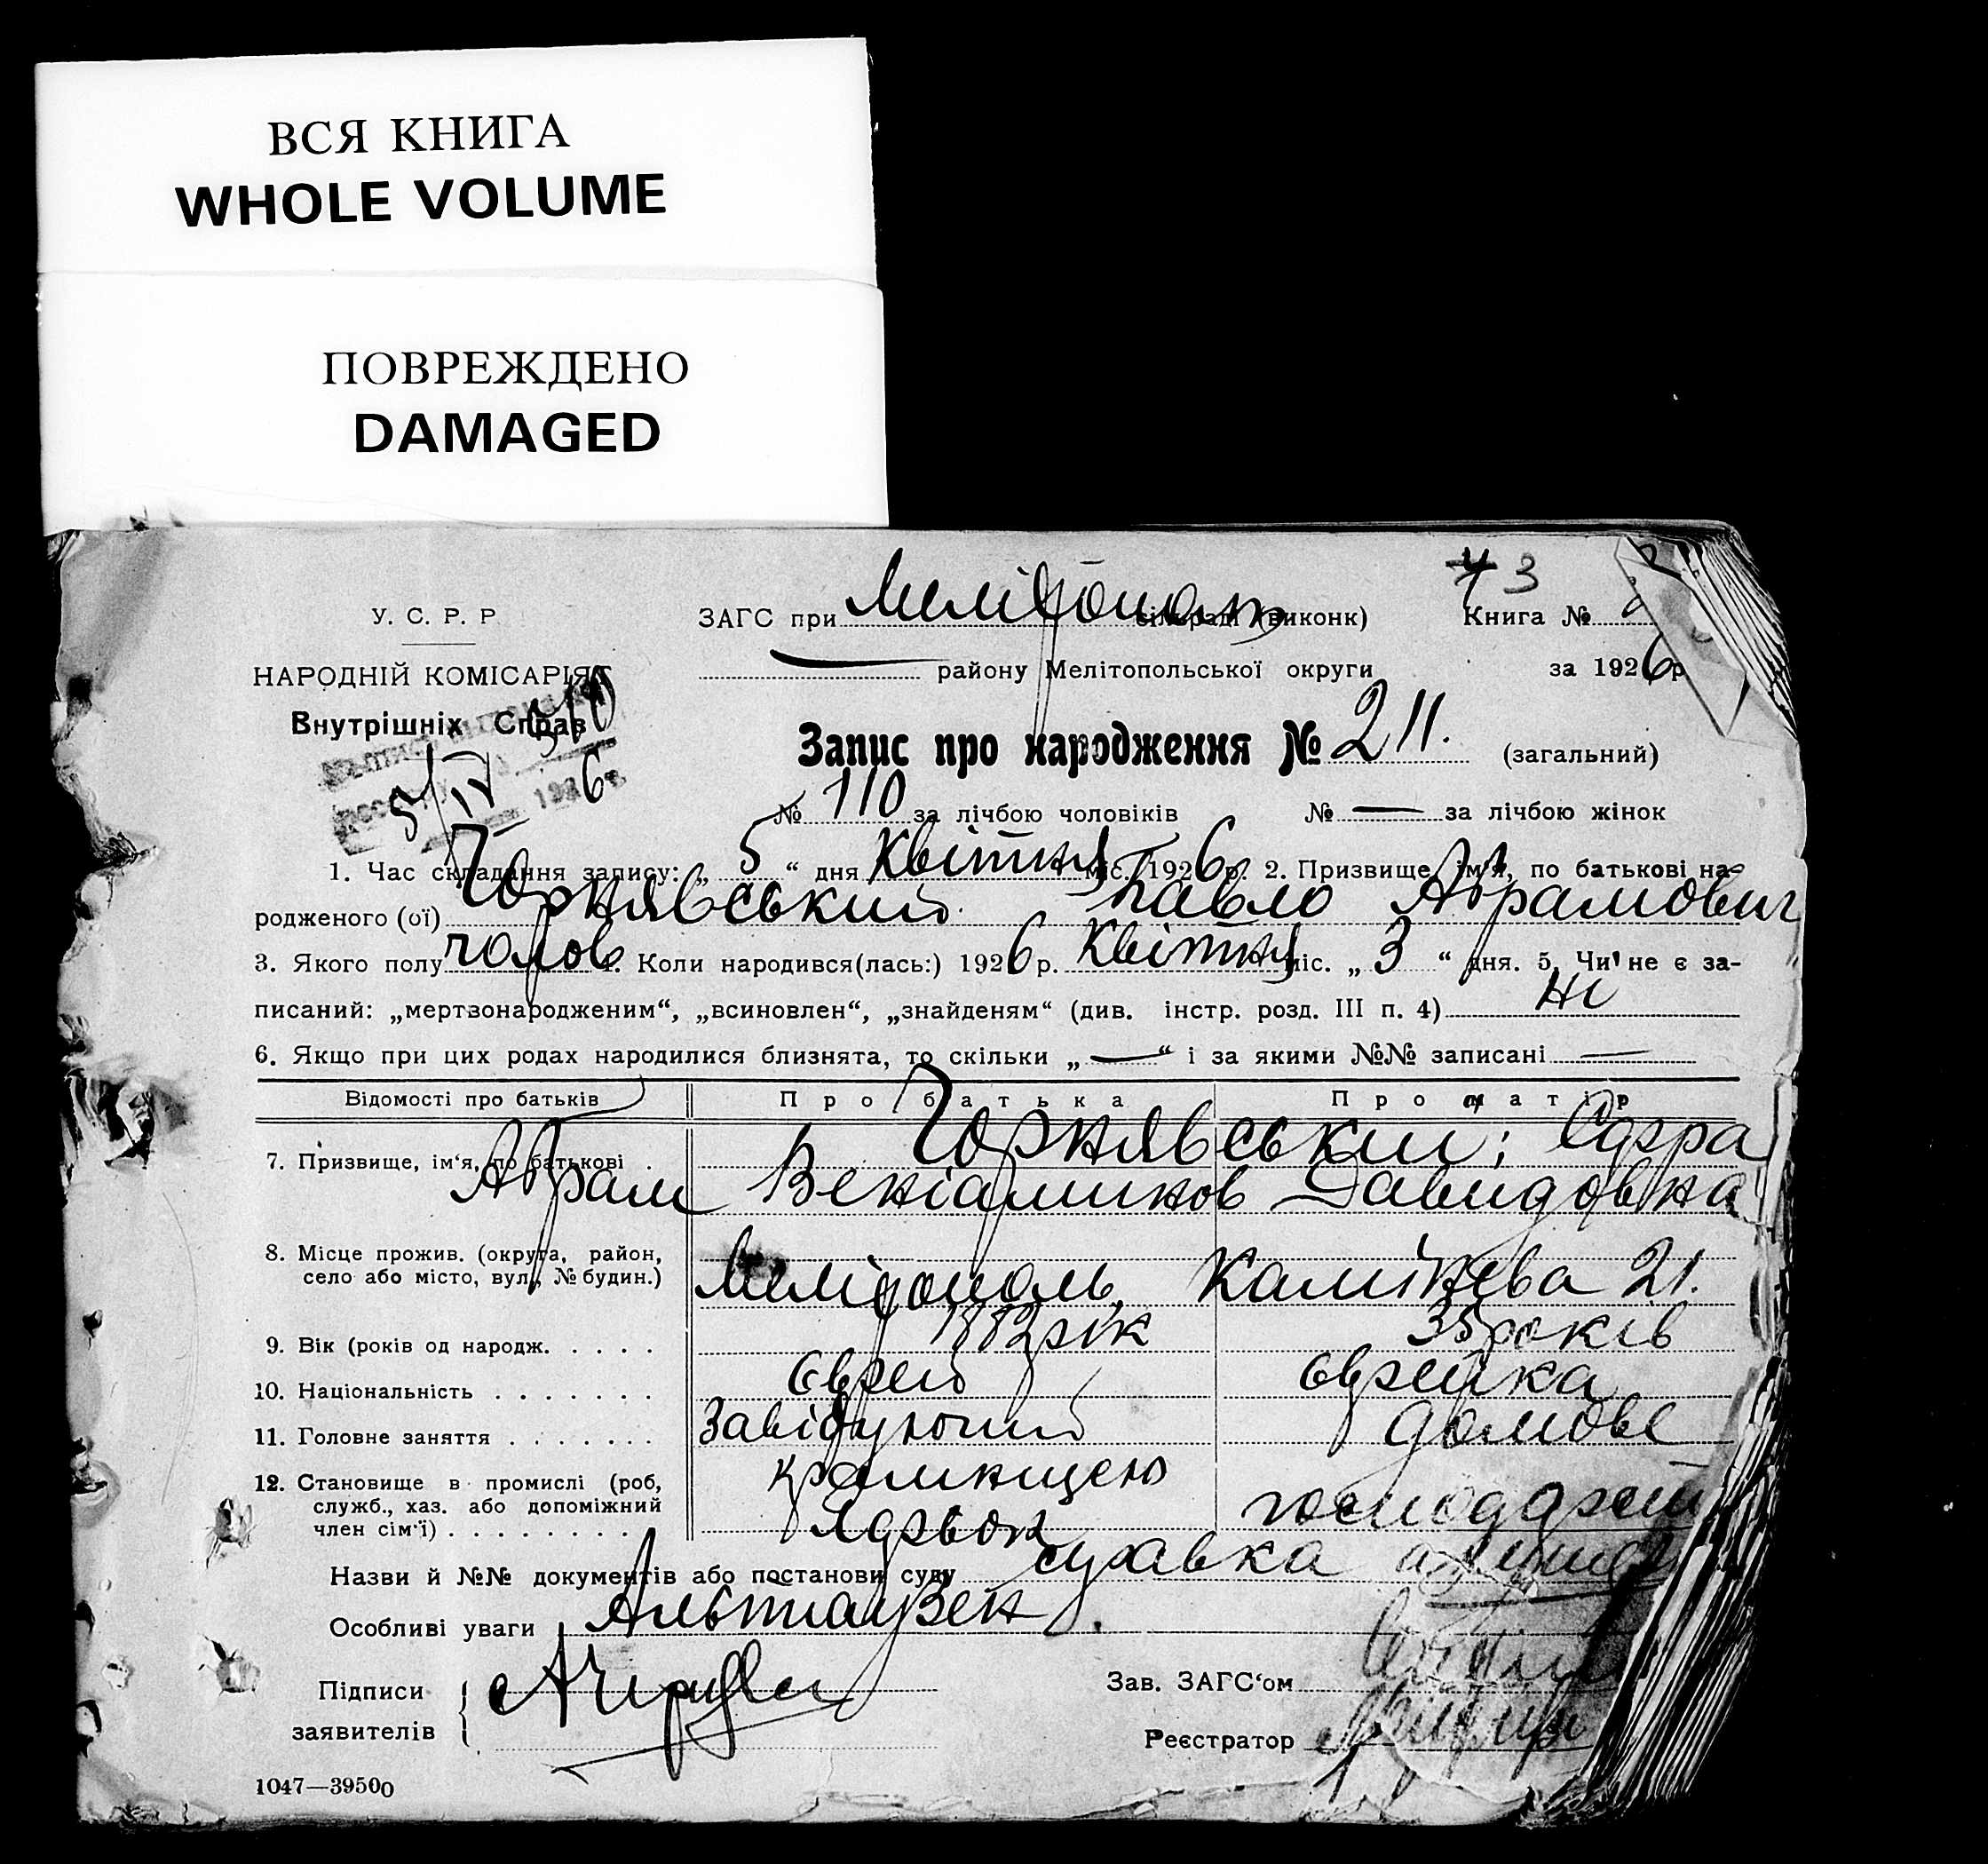 ВСЯ КНИГА
WHOLE VOLUME
ПОВРЕЖДЕНО
DAMAGED
73
У. С. Р. Р.
ЗАГС при Мелітополь сільраді (виконк) Книга №
НАРОДНІЙ КОМІСАРІЯТ
району Мелітопольської округи за 1926 р
Внутрішніх Справ
Запис про народження № 211. (загальний)
5/IV 6
№ 110 за лічбою чоловіків № — за лічбою жінок
1. Час складання запису: „ 5 “ дня Квітня міс. 1926 р. 2. Призвище, ім'я, по батькові на-
родженого (ої) Чорнявський Павло Абрамович
3. Якого полу чолов 4. Коли народився(лась:) 1926 р. Квітня міс. „ 3 “ дня. 5. Чи не є за-
писаний: „мертвонародженим“, „всиновлен“, „знайденям“ (див. інстр. розд. III п. 4) ні
6. Якщо при цих родах народилися близнята, то скільки „ — “ і за якими №№ записані —
Відомості про батьків Про батька Про матір
7. Призвище, ім‘я, по батькові . Чорнявськи; 
Абрам Веніаминов Давидовна
8. Місце прожив. (округа, район,
село або місто, вул., № будин.) Мелітополь, Калініева 21.
9. Вік (років од народж. . . . . 1882 рік 35 років
10. Національність . . . . . . . Єврей єврейка
11. Головне заняття . . . . . . . Завідуючий домове
12. Становище в промислі (роб, крамницею
служб., хаз. або допоміжний господар
член сім‘ї) . . . . . . . . .
Назви й №№ документів або постанови суду справка
Особливі уваги Альтгаузен.
Підписи
заявителів
Зав. ЗАГС‘ом
Реєстратор
1047—39500